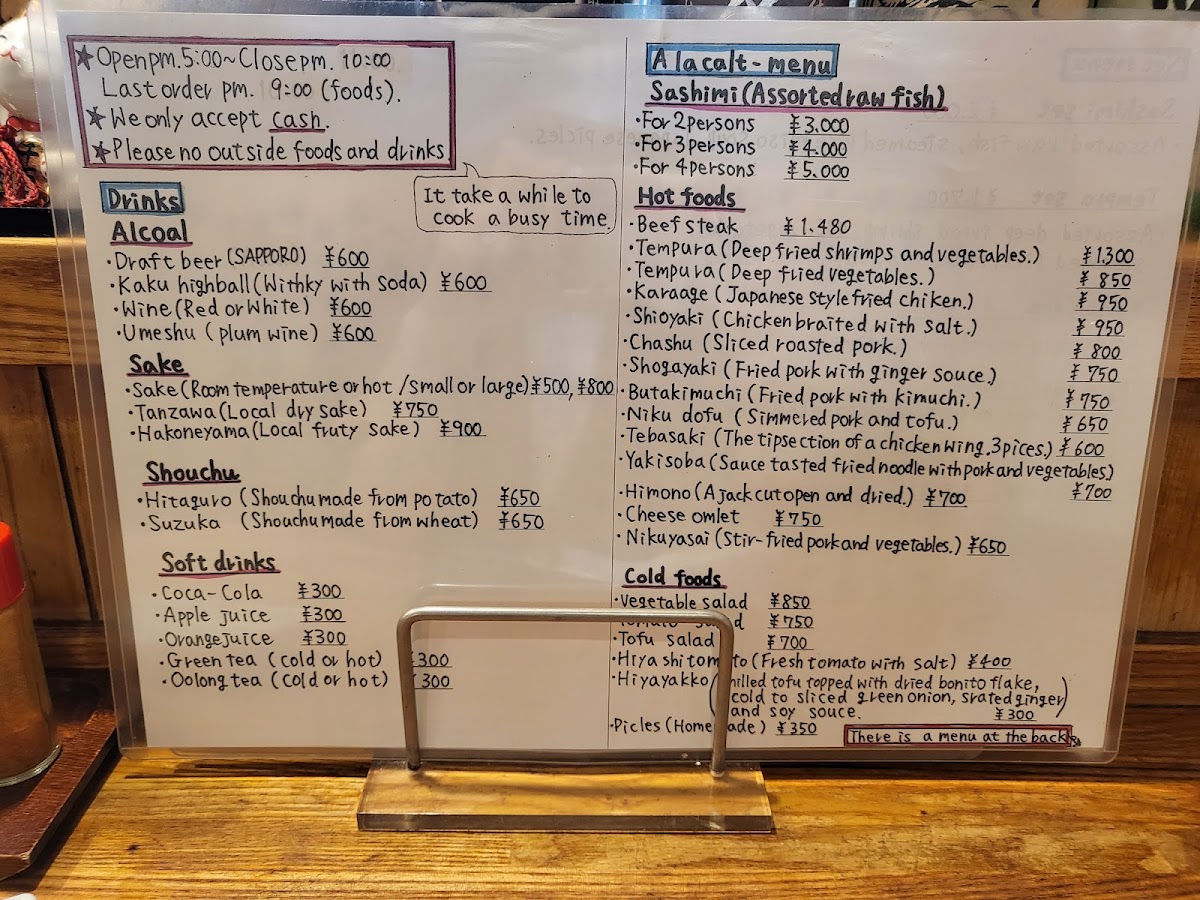 ★Open pm. 5:00~Close pm. 10:00
Last order pm. 9:00 (foods).
★We only accept cash.
★Please no outside foods and drinks
It take a while to
cook a busy time.
Drinks
Alcoal
・Draft beer (SAPPORO) ¥600
・Kaku highball (Withky with soda) ¥600
・Wine (Red or White) ¥600
・Umeshu (plum wine) ¥600
Sake
・Sake (Room temperature or hot / small or large) ¥500, ¥800
・Tanzawa (Local dry sake) ¥750
・Hakoneyama (Local fruty sake) ¥900
Shouchu
・Hitaguro (Shouchu made from potato) ¥650
・Suzuka (Shouchu made from wheat) ¥650
Soft drinks
・Coca-Cola ¥300
・Apple juice ¥300
・Orange juice ¥300
・Green tea (cold or hot) 300
・Oolong tea (cold or hot) 300
A la calt-menu
Sashimi (Assorted raw fish)
・For 2 persons ¥3.000
・For 3 persons ¥4.000
・For 4 persons ¥5.000
Hot foods
・Beef steak ¥1.480
・Tempura (Deep fried shrimps and vegetables.) ¥1.300
・Tempura (Deep fried vegetables.) ¥850
・Karaage (Japanese style fried chiken.) ¥950
・Shioyaki (Chicken braited with salt.) ¥950
・Chashu (Sliced roasted pork.) ¥800
・Shogayaki (Fried pork with ginger souce.) ¥750
・Butakimuchi (Fried pork with kimuchi.) ¥750
・Niku dofu (Simmered pork and tofu.) ¥650
・Tebasaki (The tip section of a chicken wing. 3 pices.) ¥600
・Yakisoba (Sauce tasted fried noodle with pork and vegetables)
¥700
・Himono (A jack cut open and dried.) ¥700
・Cheese omlet ¥750
・Nikuyasai (Stir-fried pork and vegetables.) ¥650
Cold foods
・Vegetable salad ¥850
d ¥750
・Tofu salad ¥700
・Hiyashitomato (Fresh tomato with salt) ¥400
・Hiyayakko (hilled tofu topped with dried bonito flake,
cold to sliced green onion, srated ginger
and soy souce.)
¥300
・Picles (Home ade) ¥350
There is a menu at the back